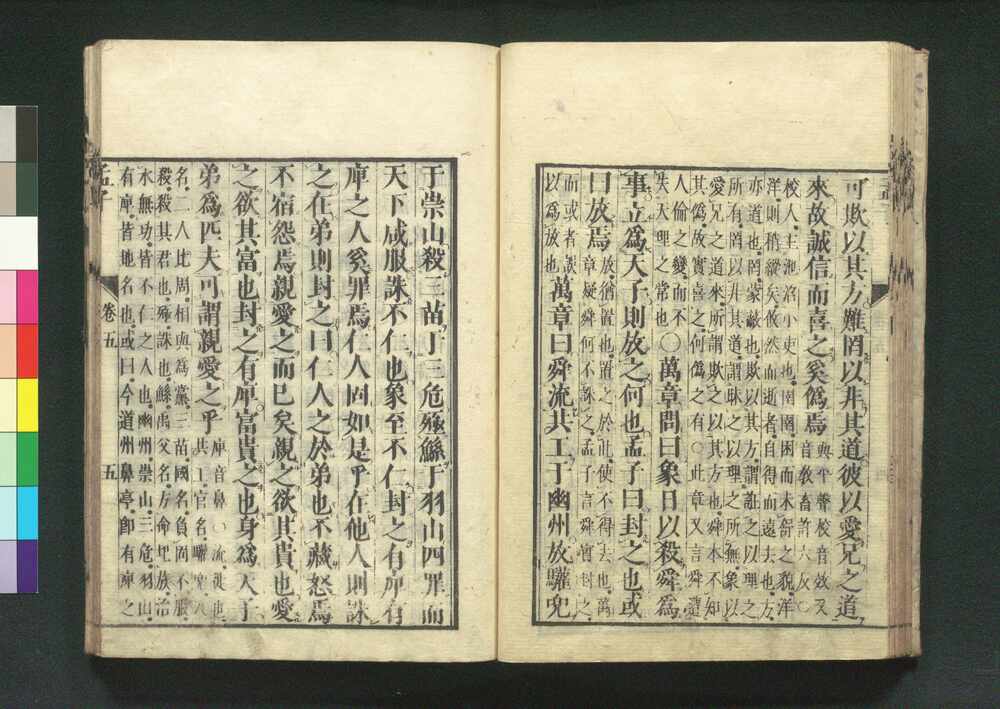 可欺以其方難罔以非其道彼以愛兄之道
來故誠信而喜之奚僞焉與平聲校音效又
音教畜許六反○
校人主池沼小吏也圉圉困而未舒之貌洋
洋則稍縱矣攸然而逝者自得而遠去也方
亦道也罔蒙蔽也欺以其方謂誑之以理之
所有罔以非其道謂昧之以理之所無象以
愛兄之道來所謂欺之以其方也舜本不知
其僞故實喜之何僞之有○此章又言舜遭
人倫之變而不
失天理之常也
○萬章問曰象日以殺舜爲
事立爲天子則放之何也孟子曰封之也或
曰放焉放猶置也置之於此使不得去也萬
章疑舜何不誅之孟子言舜實封之
而或者誤
以爲放也
萬章曰舜流共工于幽州放驩兜
于崇山殺三苗于三危殛鯀于羽山四罪而
天下咸服誅不仁也象至不仁封之有庳有
庳之人奚罪焉仁人固如是乎在他人則誅
之在弟則封之曰仁人之於弟也不藏怒焉
不宿怨焉親愛之而已矣親之欲其貴也愛
之欲其富也封之有庳富貴之也身爲天子
弟爲匹夫可謂親愛之乎庳音鼻○流徙也
共工官名驩兜人
名二人比周相與爲黨三苗國名負固不服
殺殺其君也殛誅也鯀禹父名方命圮族治
水無功皆不仁之人也幽州崇山三危羽山
有庳皆地名也或曰今道州鼻亭卽有庳之
孟子
卷五
五